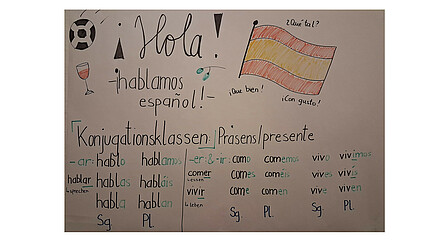 ¡Hola!
¿Qué tal?
- hablamos
español! -
¡Que bien!
¡Con gusto!
Konjugationsklassen Präsens/presente
-ar: hablo hablamos -er: & -ir: como comemos vivo vivimos
hablar hablas habláis comer comes coméis vives vivís
sprechen essen
habla hablan vivir come comen vive viven
leben
Sg. Pl. Sg. Pl. Sg. Pl.